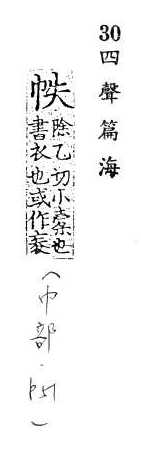 30四聲篇海
帙
除乙切小橐也
書衣也或作袠
(巾部.